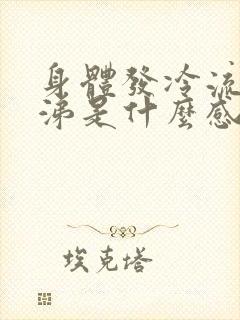 身體發冷流
涕是什麼感
埃克塔